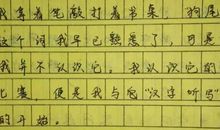 我拿着笔敲打着书桌，狗尾
这个词我早已熟悉了，可是
我并不认识它。我认识它的
比赛，便是我与您“汉字听写”
的开始。